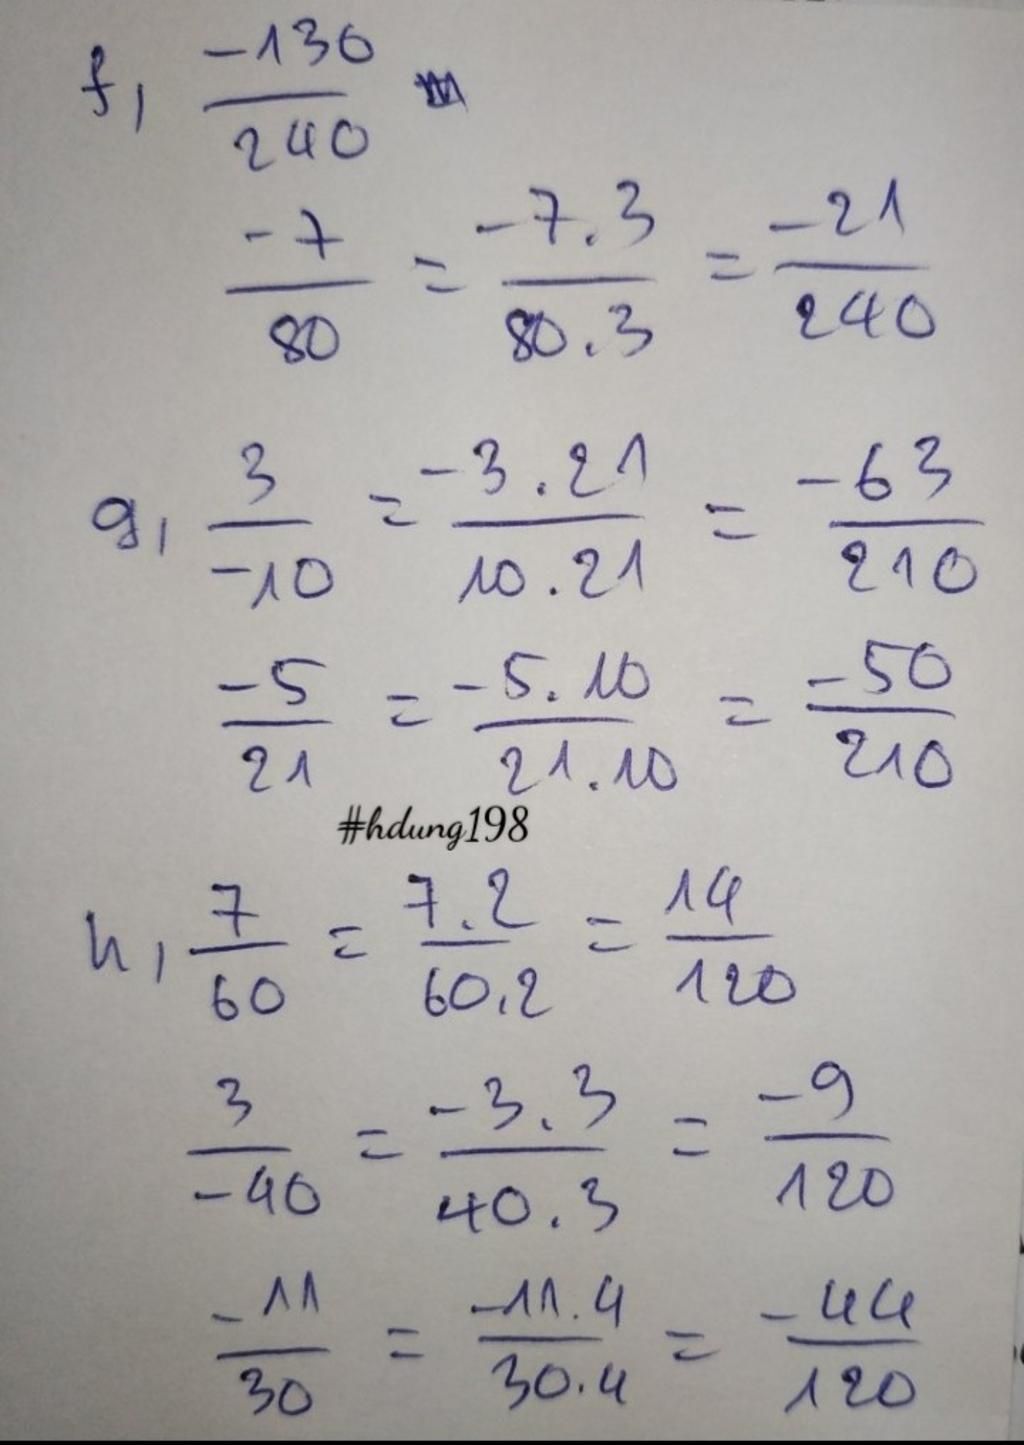 f, -130/240
-7/80 = -7.3/80.3 = -21/240
g, 3/-10 = -3.21/10.21 = -63/210
-5/21 = -5.10/21.10 = -50/210
#hdung198
h, 7/60 = 7.2/60.2 = 14/120
3/-40 = -3.3/40.3 = -9/120
-11/30 = -11.4/30.4 = -44/120